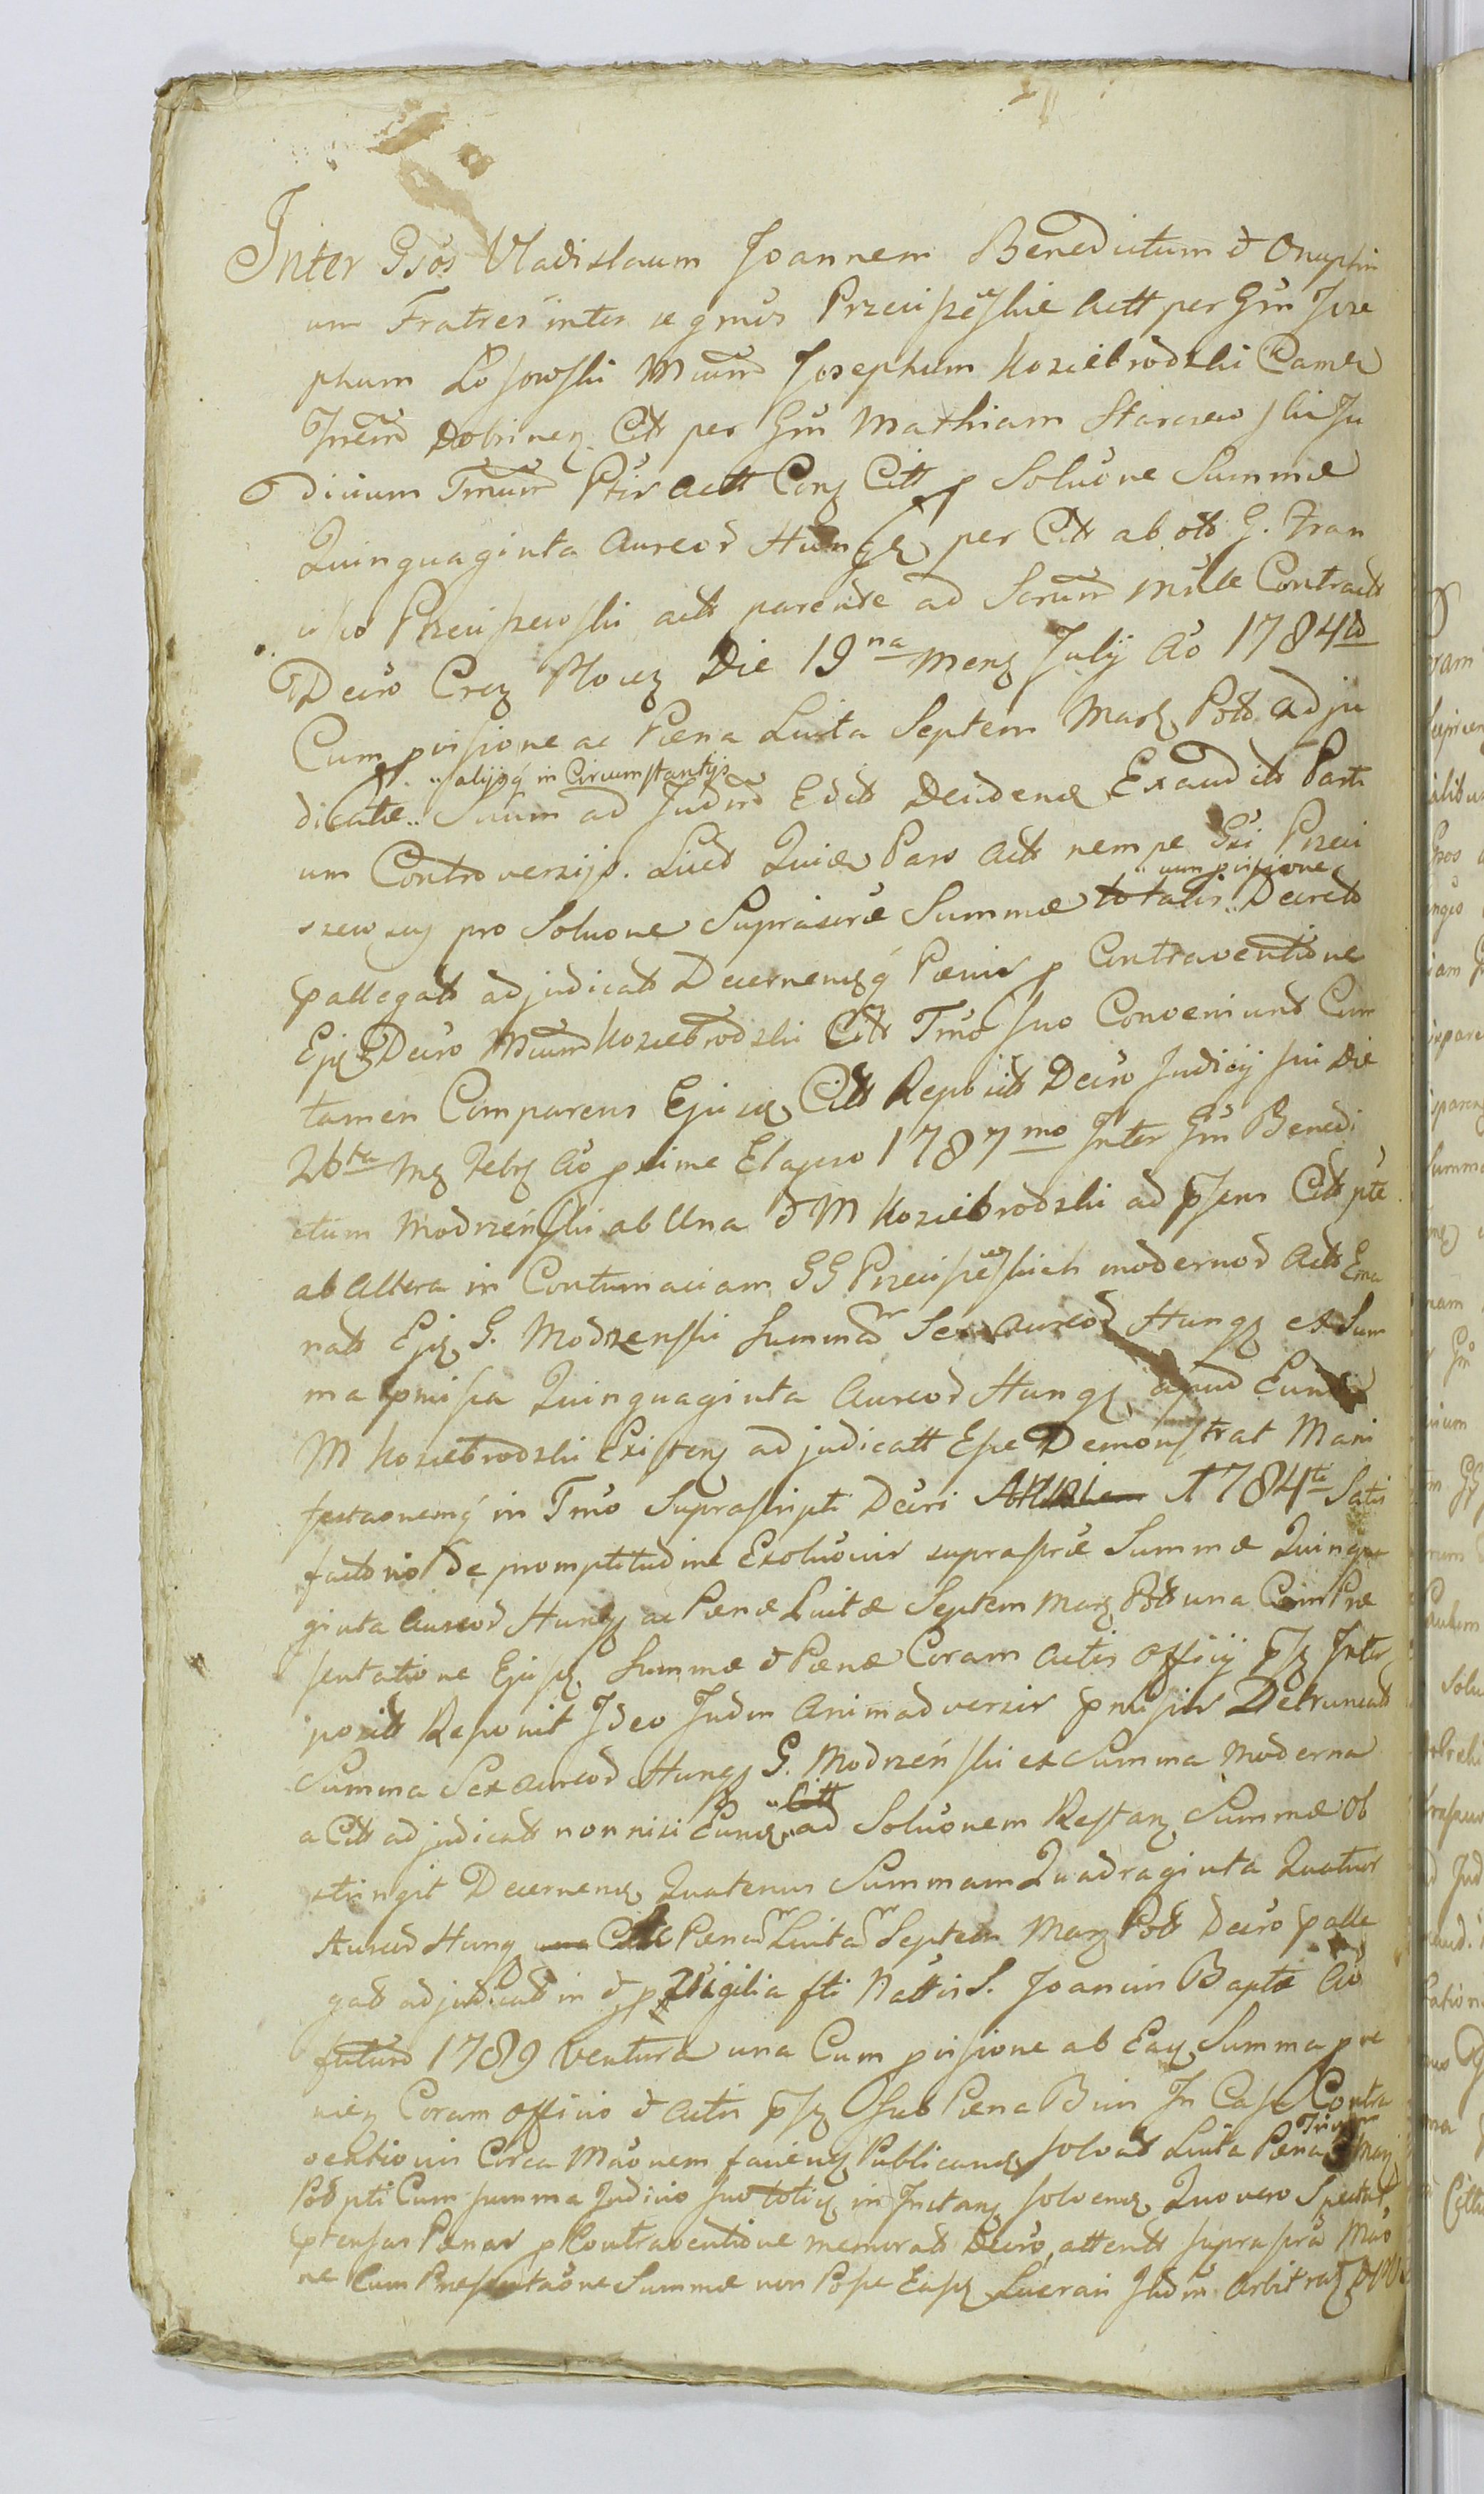 Inter Gsos Vladislaum Joannem Benedictum et Onuphri
um Fratres inter se gmos Przeciszewskie Actt per Gm Jose
phum Łosowski Mcum Josephum Koziebrodzki Camer
Dobrinen Citt per Gm Mathiam Starczewski Ju
dicium Tmum Ptis Actt Conq Citt p Soluone Summæ
Quinquaginta Aureor Hung per Citt ab ott G. Fran
cisco Przeciszewski actt parente ad Scrum Contractt
Decro Plocen Die 19na Mens July Ao 1784to
Cum pvisione ac Pæna Luita Septem Mar Poll adju
.. alijsq in Circumstantijs
dicatæ.. Suum ad Judm Edit Decidend Exauditis Parti
um Controversijs. Licet Quidem Pars Actt nempe Gsi Przeci
.. cum pvisione
szewscy pro Soluone Suprascræ Summæ totalis.. Decreto
pallegato adjudicat Decernendq Pænis p Contraventione
Ejq Decro Mcum Koziebrodzki Citt Tmo suo Conveniunt Cum
tamen Comparens Ejusq Citt Reposit Decro Judicij sui Die
26ta Mens Febr Ao pxime Elapso 1787mo Inter Gm Benedi
ctum Modrzeński ab Una et M Koziebrodzki ad psens Citt pte
ab Altera in Contumaciam GG Przeciszewskich modernor Actt Ema
nato Ejq G. Modrzenski Summam Sex aureor Hung ex Sum
ma pmissa Quinquaginta Aureor Hung apud Eund
M Koziebrodzki Existen adjudicatt Esse Demonstrat Mani
festaonemq in Tmo Suprascripti Decri 1784ti Satis
facto de promptitudine Exoluonis suprascræ Summæ Quinqua
ginta Aureor Hung ac Pænæ Luitæ Septem Mar Poll una Cum Præ
sentatione Ejusq Summæ et Pænæ Coram Actis Officij psq Inter
positt Reponit Ideo Judm Animadversis pmissis Detruncatt
Summa Sex aureor Hung G. Modrzeński ex Summa moderna
.. Citt
a Citt adjudicatt nonnisi Eund.. ad Soluonem Restan Summæ Ob
stringit Decernend Quatenus Summam Quadraginta Quatuor
Aureor Hung Pænam Luitam Septem Mar Poll Decro palle
gato adjudicat in et p Vigilia fti Nattis S. Joannis Baptæ Ao
futuro 1789 Ventura una Cum pvisione ab Eaq Summa pve
nien Coram Officio et Actis psq Sub Pæna Bnis In Casu Contra
Trium
ventionis Circa Mаonem faciend Publicand solvat Luita Pæna Mar
Poll pti Cum summa Judicio suo toties in Instan solvend Quo vero Spectat
ptensas Pænas p Contraventione memorato Decro, attentt suprascra Mao
ne Cum Præsentaone Summæ non Posse Easq Lucrari Judm Arbitrat